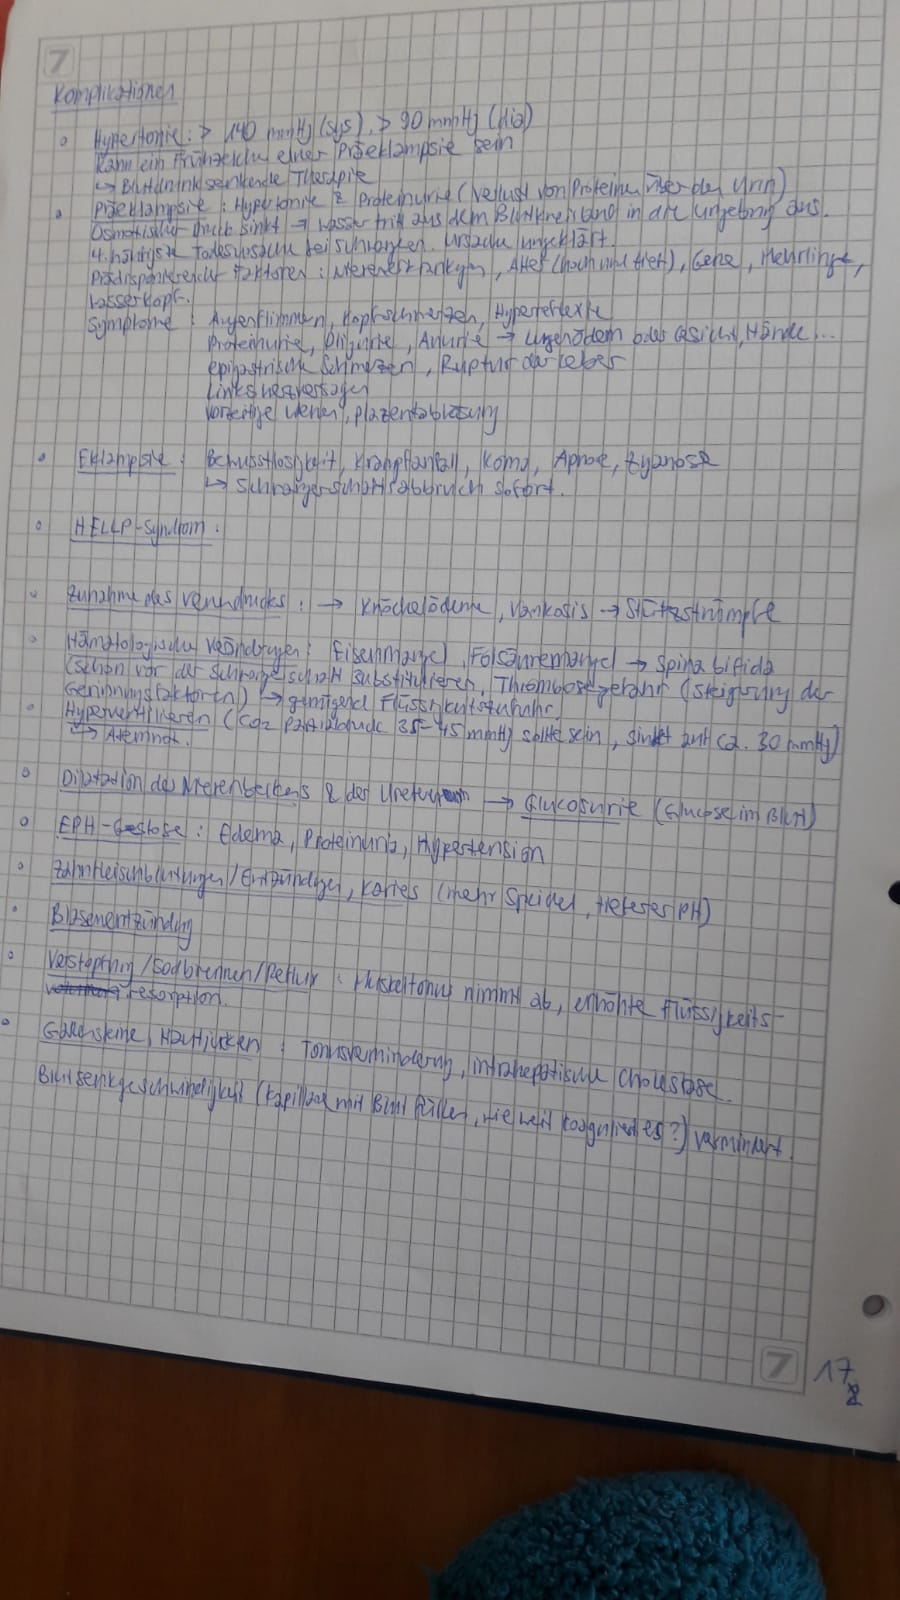 7
Komplikationen
Hypertonie: > 140 mmHg (sys), > 90 mmHg (dia)
Kann ein Frühzeichen einer Präeklampsie sein
↳ Blutdrucksenkende Therapie
Präeklampsie: Hypertonie & Proteinurie (Verlust von Proteinen über den Urin)
Osmotischer druck sinkt → wasser tritt aus dem Blutkreislauf in die umgebung aus.
4. häufigste Todesursache bei schwangeren. Ursache ungeklärt.
Prädisponierende Faktoren: Nierenerkrankungen, Alter (hoch und tief), Gene, Mehrlinge,
wasserkopf.
Symptome: Augenflimmern, Kopfschmerzen, Hyperreflexie
Proteinurie, Oligurie, Anurie → Lungenödem oder Gesicht, Hände...
epigastrische Schmerzen, Ruptur der Leber
Linksherzversagen
Vorzeitige Wehen, Plazentablösung
Eklampsie: Bewusstlosigkeit, Krampfanfall, Koma, Apnoe, Zyanose
↳ Schwangerschaftsabbruch sofort.
HELLP-Syndrom:
Zunahme des Venendrucks: → Knöchelödeme, Varikosis → Stützstrümpfe
Hämatologische Veränderungen: Eisenmangel, Folsäuremangel → Spina bifida
(schon vor der Schwangerschaft substituieren, Thrombosegefahr (Steigerung der
Gerinnungsfaktoren) → genügend Flüssigkeitszufuhr
Hyperventilieren (CO2 Partialdruck 35-45 mmHg sollte sein, sinkt auf ca. 30 mmHg)
↳ Atemnot.
Dilatation des Nierenbeckens & des Ureters → Glucosurie (Glucose im Blut)
EPH-Gestose: Edema, Proteinuria, Hypertension
Zahnfleischblutungen/Entzündungen, Karies (mehr Speichel, tieferer PH)
Blasenentzündung
Verstopfung/Sodbrennen/Reflux: Muskeltonus nimmt ab, erhöhte Flüssigkeits-
resorption.
Gallensteine, Hautjucken: Tonusverminderung, intrahepatische Cholestase.
Blutsenkgeschwindigkeit (Kapillare mit Blut füllen, wie weit koaguliert es?) vermindert.
7
17